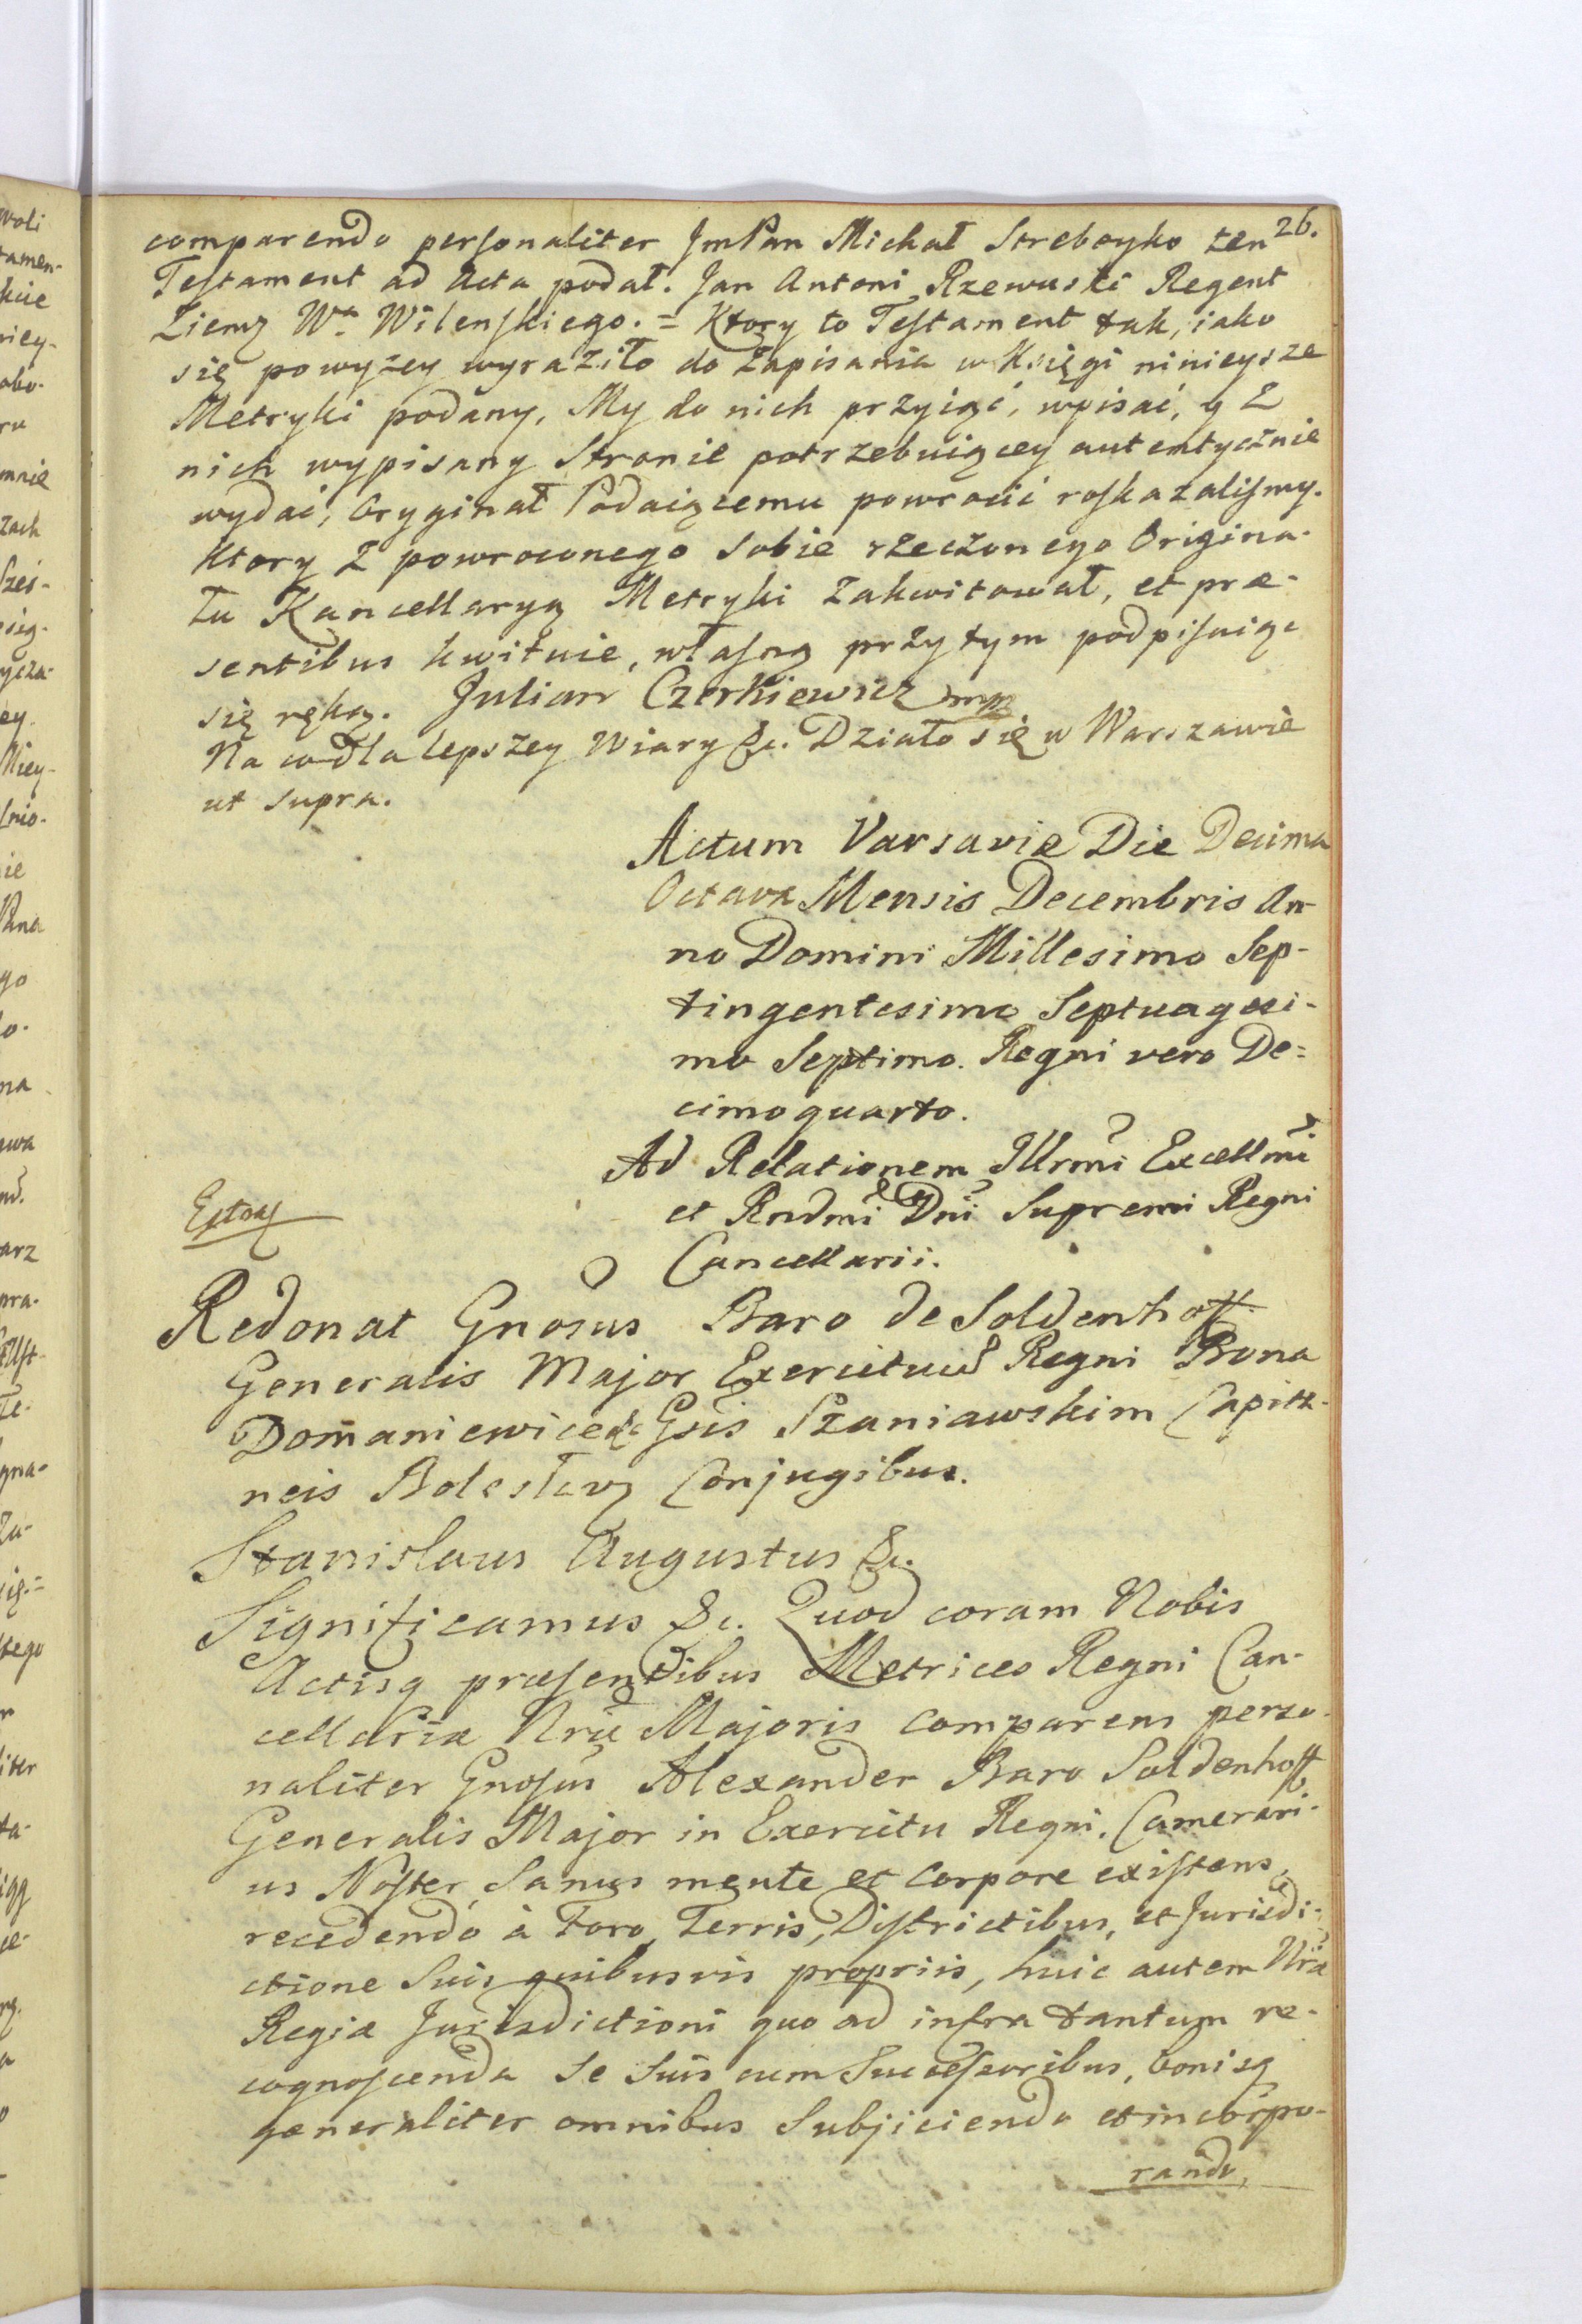 26.
comparendo personaliter JmPan Michał Streboyko ten
Testament ad Acta podał. Jan Antoni Rzewuski Regent
Ziemz Wa Wilenskiego. = Ktory to Testament tak, iako
się powyzey wyraziło do Zapisania w Księgi ninieysze
Metryki podany, My do nich przyiąć, wpisać, y Z
nich wypisany Stronie potrzebuiącey autentycznie
wydać, Oryginał Podaiącemu powrocić roskazalismy.
Ktory Z powroconego Sobie rzeczonego Origina-
łu Kancellaryą Metryki Zakwitował, et præ-
sentibus kwituie, własną przytym podpisuiąc
się ręką. Julian Czerkiewicz mp
Na co dla lepszey Wiary &c. Działo się w Warszawie
ut supra.
Actum Varsaviæ Die Decima
Octava Mensis Decembris An-
no Domini Millesimo Sep-
tingentesimo Septuagesi-
mo Septimo. Regni vero De=
cimoquarto.
Ad Relationem Illrmi Excellmi
et Rndmi Dni Supremi Regni
Cancellarii.
Redonat Gnosus Baro de Soldenhoff
Generalis Major Exercituu Regni Bona
Domaniewice &c Gsis Szaniawskim Capita-
neis Bolesłavz Conjugibus.
Stanislaus Augustus &c.
Significamus &c. Quod coram Nobis
Actisq præsentibus Metrices Regni Can-
cellariæ Nræ Majoris comparens perso-
naliter Gnosus Alexander Baro Soldenhoff
Generalis Major in Exercitu Regni, Camerari-
us Noster, Sanus mente et Corpore existens,
recedendo à Foro, Terris, Districtibus, et Jurisdi-
ctione Suis quibusvis propriis, huic autem Nræ
Regiæ Jurisdictioni quo ad infra tantum re-
cognoscenda Se Suis cum Successoribus, bonisq
generaliter omnibus Subjiciendo et incorpo-
rando,